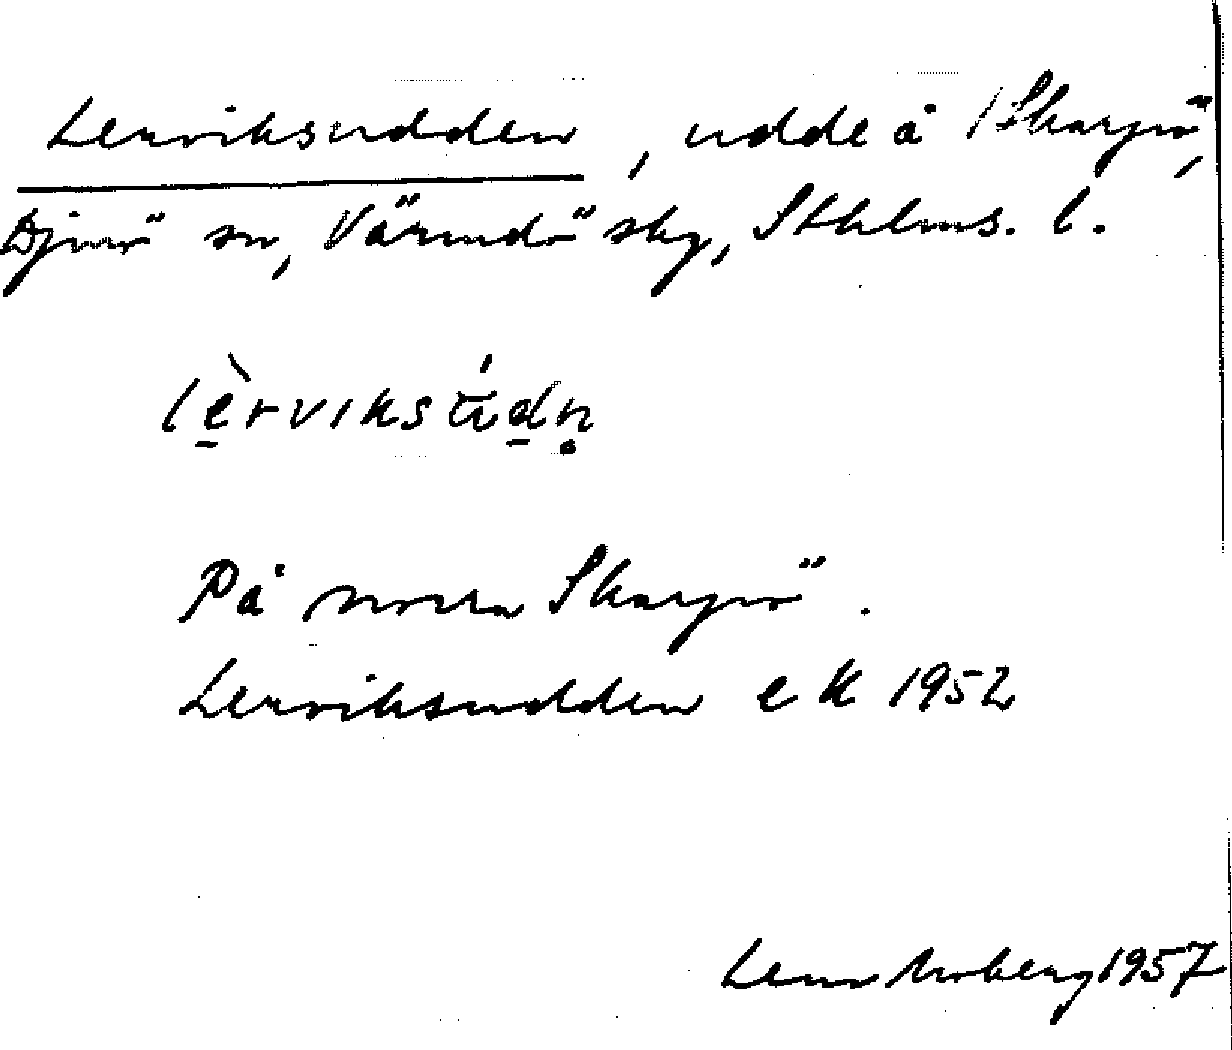 Lerviksudden, udde å Skarpö,
Djurö sn, Värmdö skg, Sthlms. l.
lèrviksúdn̥
På norra Skarpö.
Lerviksudden ek 1952
Lena Moberg 1957